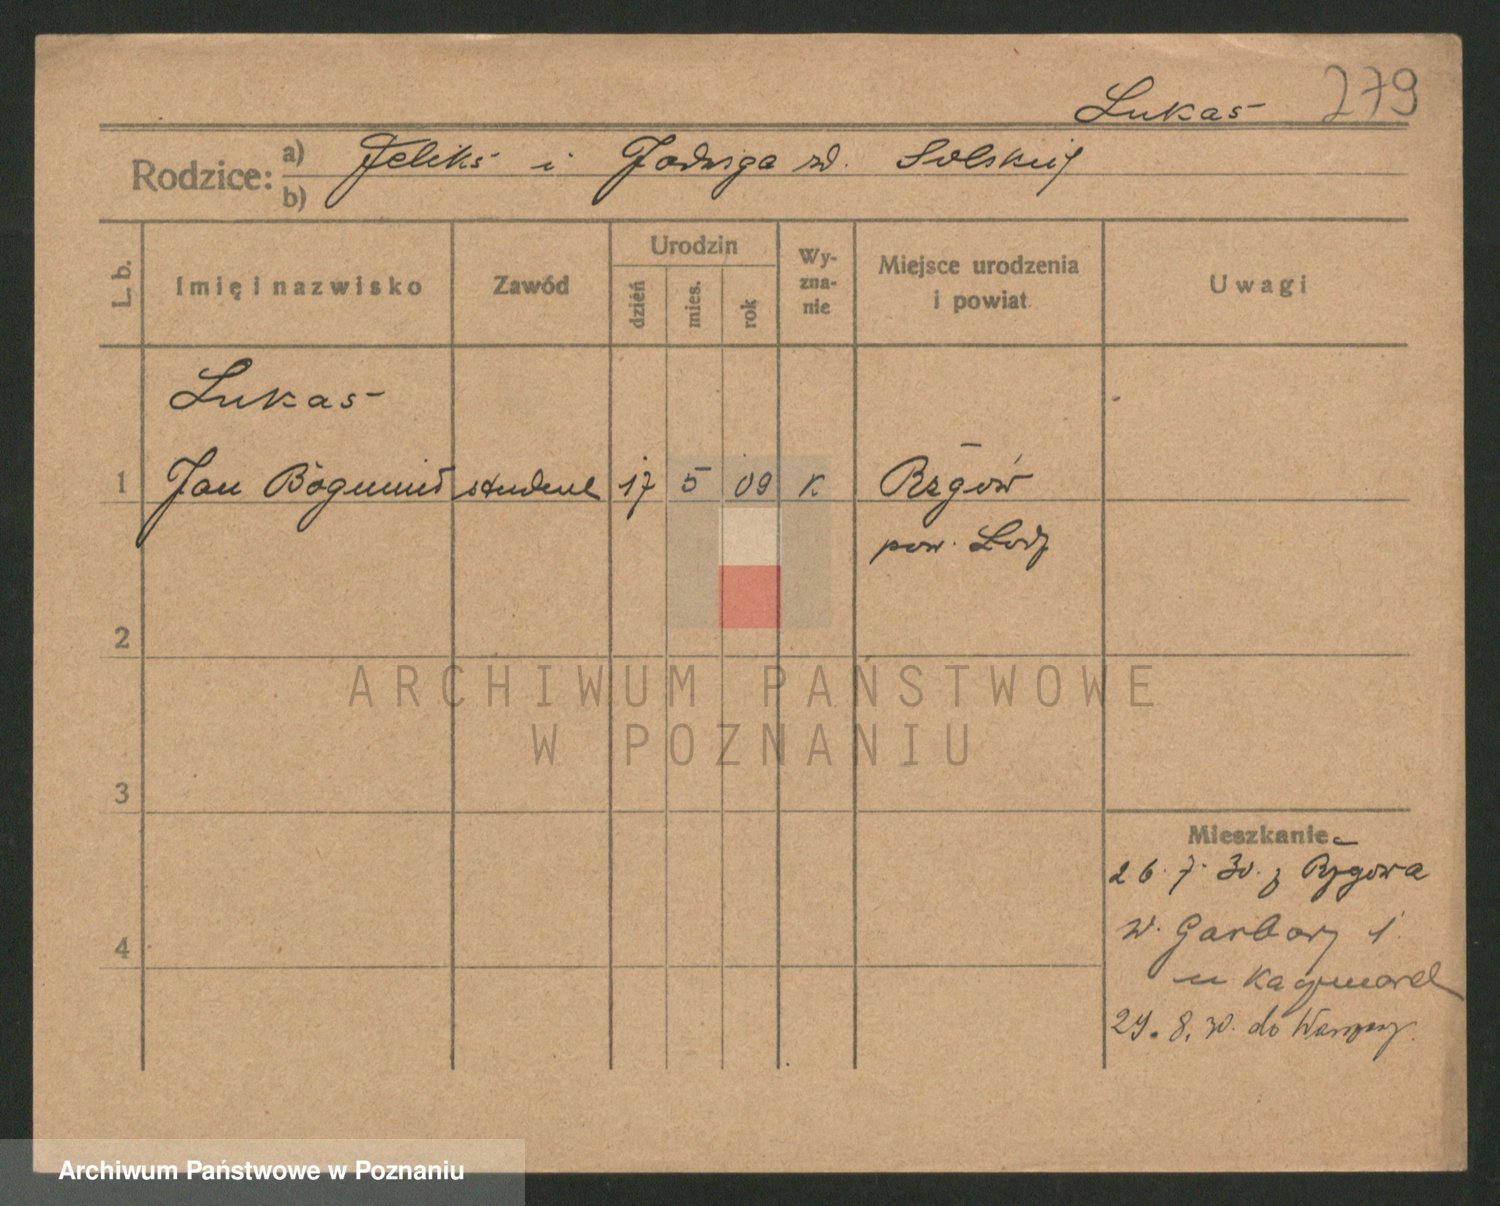 279
Lukas
Rodzice: a) Feliks i Jadwiga zd. Solskiej
b)
L. b. Imię i nazwisko Zawód Urodzin dzień mies. rok Wyznanie Miejsce urodzenia i powiat Uwagi
Lukas
1 Jan Bogumił student 17 5 09 K Rzgów
pow. Łódź
2
ARCHIWUM PAŃSTWOWE
W POZNANIU
3
Mieszkanie
26. 7. 30. z Rzgowa
w. Garbary 1
4
u Kaczmarek
29. 8. 30. do Warszawy
Archiwum Państwowe w Poznaniu